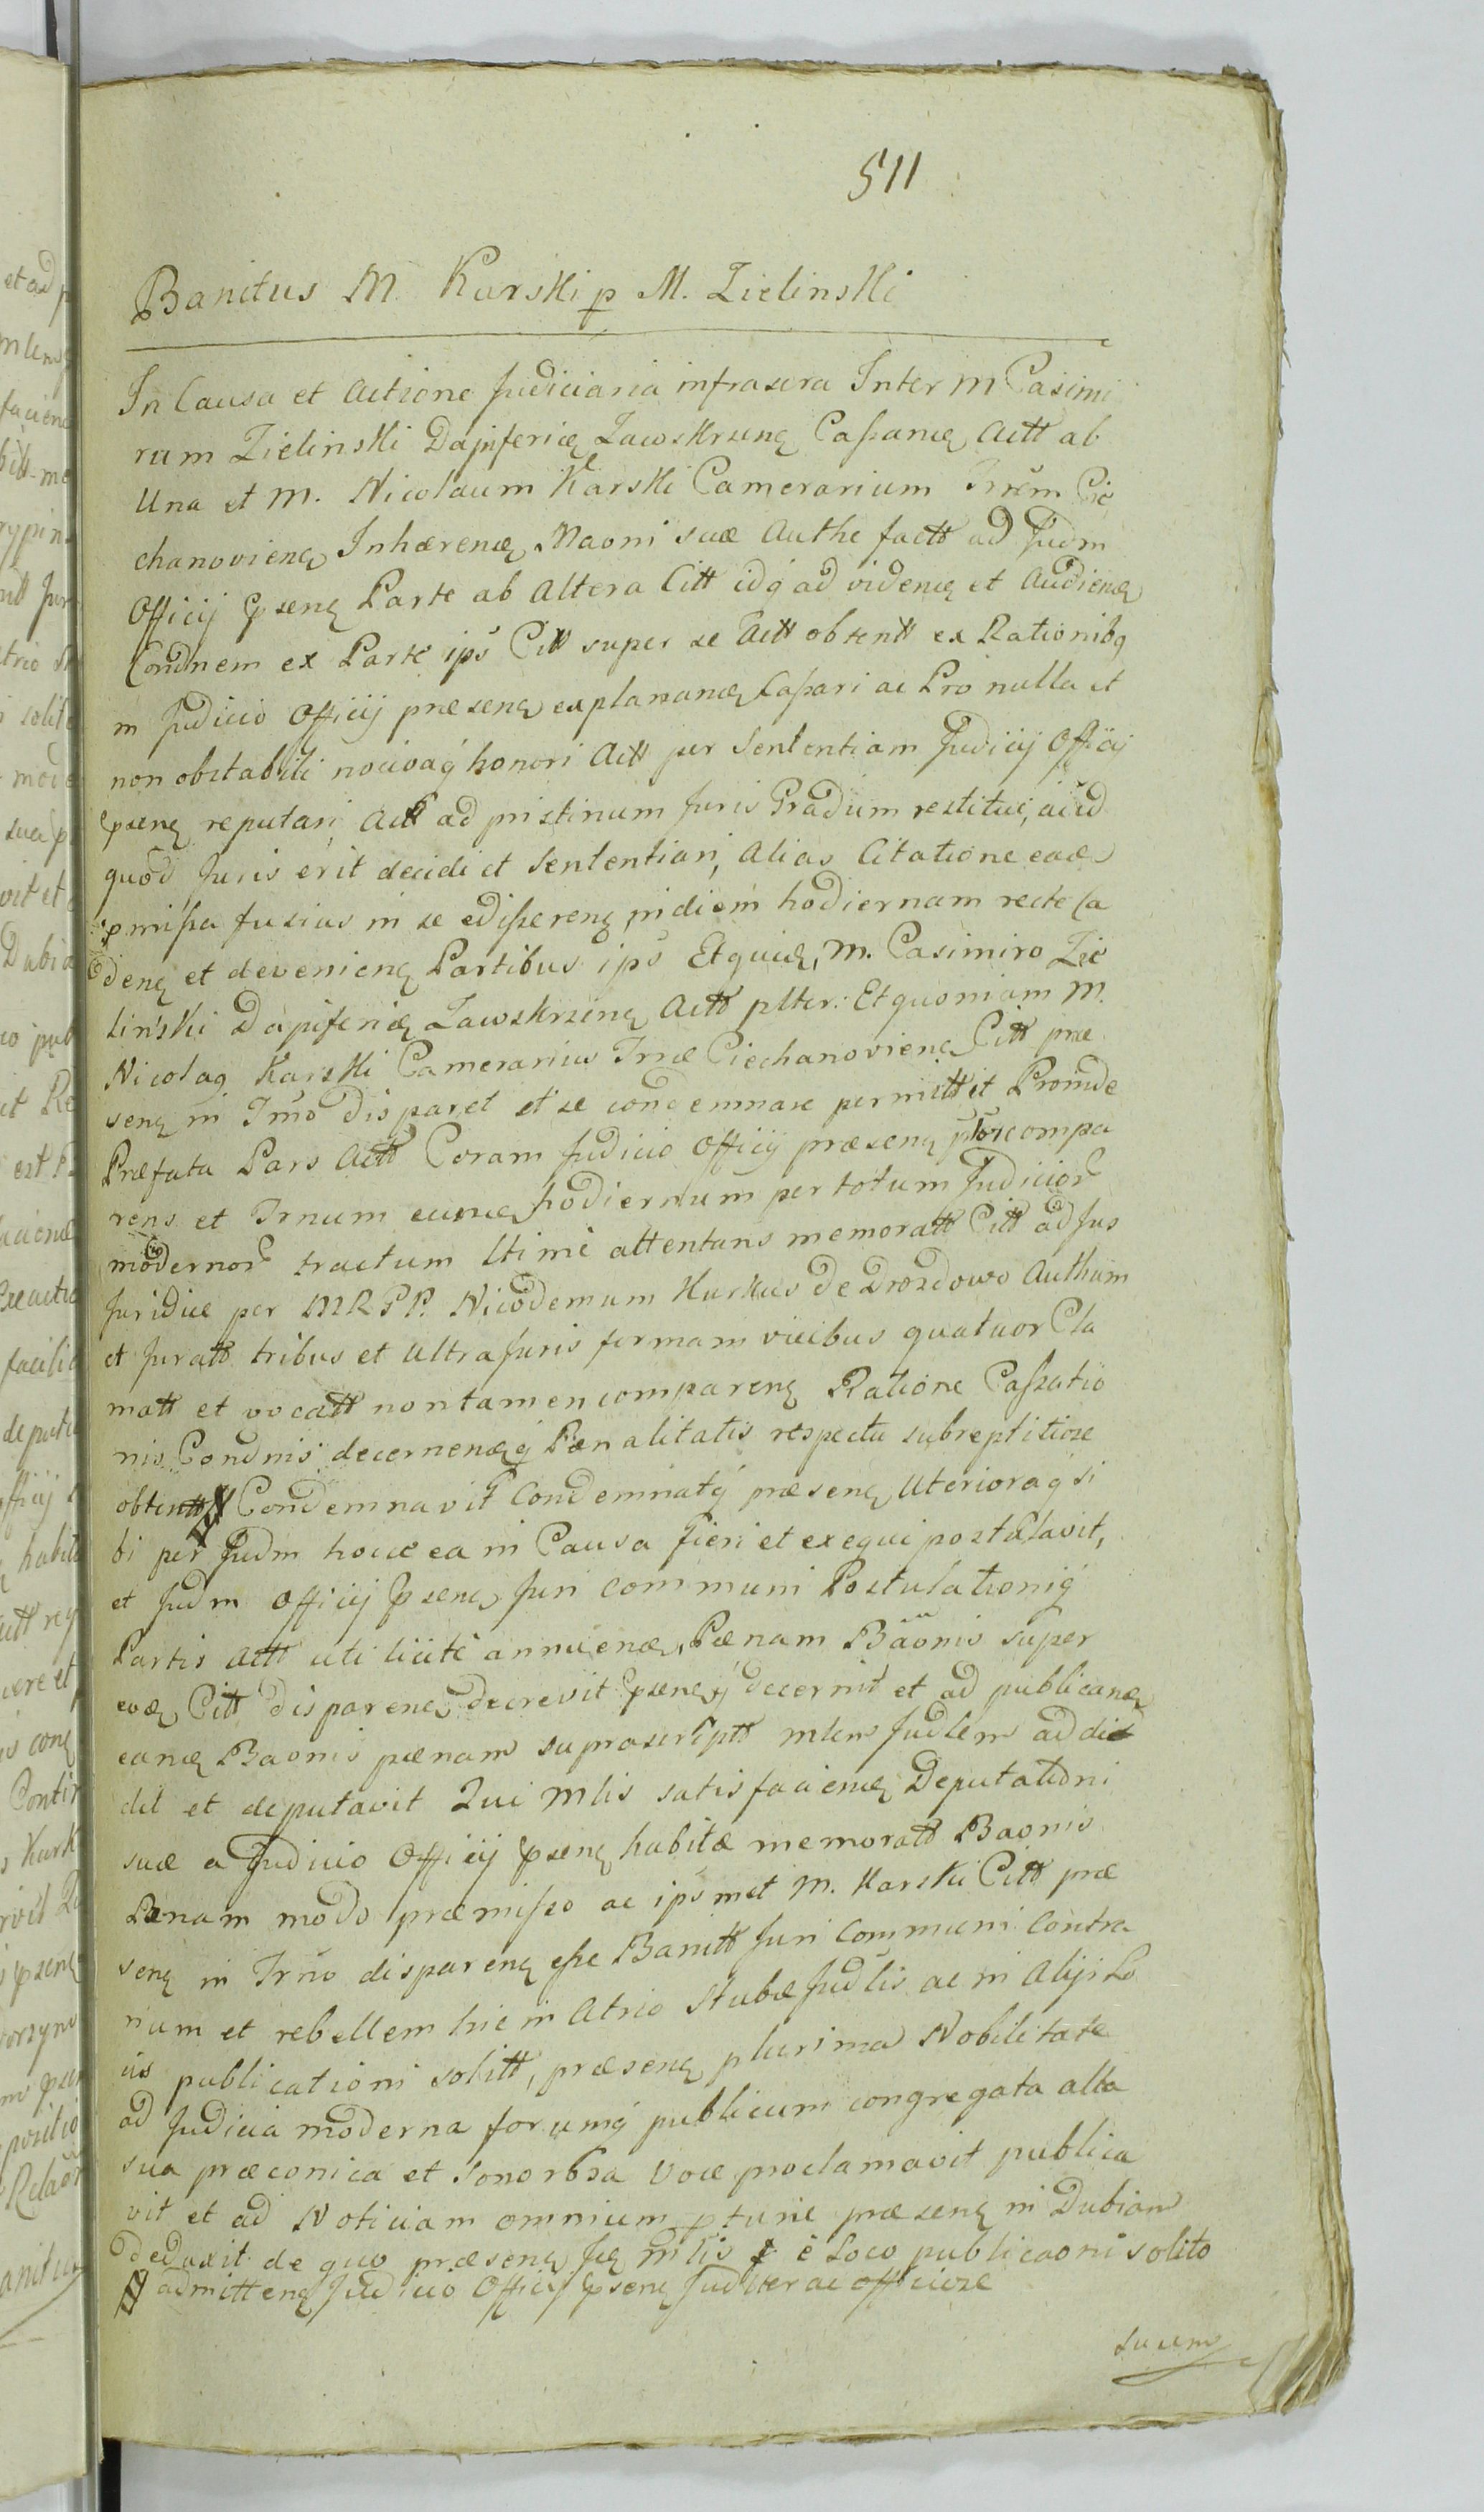 511
Banitus M. Karski p M. Zielinski
In Causa et Actione Judiciaria infrascra Inter M Casimi
rum Zielinski Dapiferię Zawskrzenę Casþanię Actt ab
Una et M. Nicolaum Karski Camerarium Trrem Cie
chanovienę Inhærenę Maoni suæ Authe factt ad Judm
Officij pseng Parte ab Altera Citt idq̃ ad videnę et Audienę
Condnem ex Parte ips Citt super se Actt obtentt ex Rationibq
in Judicio Officij præsenę explananę Caſsari ac Pro nulla et
non obstabili nocivaq̃ honori Actt per Sententiam Judicij Officij
psenę reputari Actt ad pristinum Juris Gradum restitui, ac id
quod Juris erit decidi et Sententiari, Alias Citatione eaď
pmiſsa fusius in se ediſserenę, in diem hodiernam recte Ca
denę et devenienę Partibus ips Etquid, M. Casimiro Zie
liński Dapiferię Zawskrzenę Actt plter: Et quoniam M.
Nicolaq Karski Camerarius Trræ Ciechanovienę Citt præ
senę in Trno disparet et se condemnare permittit Proinde
Præfata Pars Actt Coram Judicio Officij præsenę pltor compa
rens et Trnum eunď hodiernum per totum Judicior
modernor tractum ltime attentans memoratt Citt ad Jus
Juridice per MRPP. Nicodemum Kurkus de Drozdowo Authum
et Juratt tribus et Ultra Juris formam vicibus quatuor Cla
matt et vocatt non tamen comparenę Ratione Caſsatio
nis Condnis decernendęq̃ Pænalitatis respectu subreptitiæ
obtentt # Condemnavit Condemnatq̃ præsenę Ulterioraq̃ si
bi per Judm hocce ea in Causa fieri et exequi postulavit,
et Judm Officij psenę Juri communi Postulationiq̃
Partis Actt uti licite annuenď, Pænam Baonis super
eoď Citt disparenę decrevit psenęq̃ decernit et ad publicanď
eanď Baonis pænam suprascriptt mlem Judlem addit
dit et deputavit Qui Mlis satisfacienď Deputationi
suæ a Judicio Officij psenę habitæ memoratt Baonis
Pænam modo præmiſso ac ipsmet M. Karski Citt præ
senę in Trno disparenę eſse Banitt Juri Communi Contra
rium et rebellem hic in Atrio Stubæ Judlis ac in Alijs Lo
cis publicationi solitt, præsenę plurima Nobilitate
ad Judicia moderna forumq̃ publicum congregata alta
sua præconica et sonorosa Voce proclamavit publica
vit et ad Noticiam omnium ptunc præsenę in Dubiam
deduxit de quo præsenę Jq mlis è Loco publicaoni solito
# admittenę Judicio Officij psenę Judlter ac officiose
suum